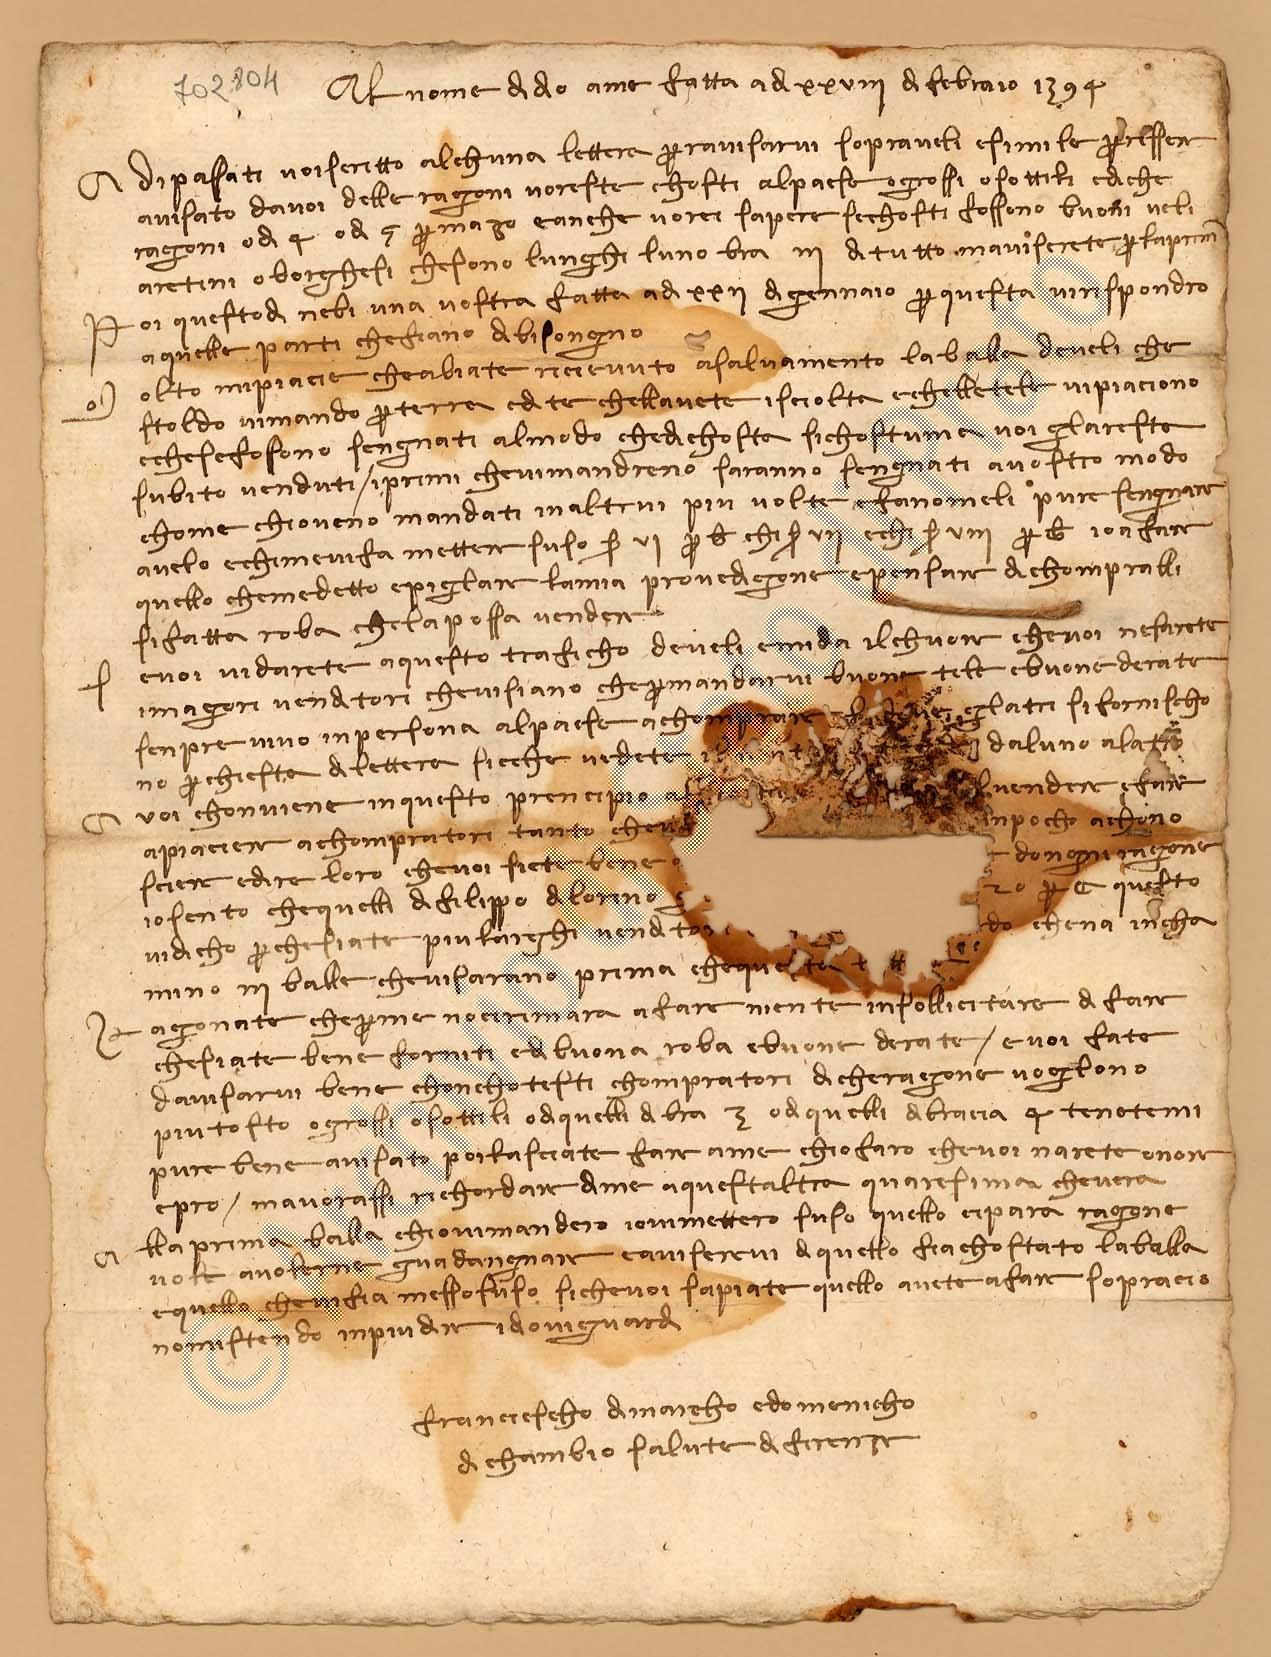 702804
Al nome di dio ame fatta adi xxviii di febraio 1394
A di passati voi scritto alchuna lettera per avisarvi sopra veli e simile per essere
avisato davoi delle ragoni voreste chosti al paese o grossi o sottili e di che
ragoni o di 4 o di 5 per mazo e anche vorei sapere se chosti fossono buoni veli
aretini o borghesi che sono lunghi luno bra iii di tutto mavisarete per la prima
Poi questo di nebi una vostra fatta adi xxii di gennaio per questa vi rispondro
a quelle parti che fiano di bisongno
Molto mi piacie che abiate ricievuto a salvamento la balla de veli che
stoldo vi mando per terra e di te che llavete isciolta e che lle tele vi piaciono
e che se fosono sengnati al modo che di chosta si chostuma voi gl areste
subito venduti / i primi che vi mandreno saranno sengnati a vostro modo
chome chio veno mandati in altrui piu volte e fanomeli pure sengnare
avelo e chi me vi fa mettere suso s vi per b chi s vii e chi s viii per b io a fare
quello che me detto e pigliare la mia provedigone e pensare di chompralli
si fatta roba che la possa vendere
S e voi vi darete a questo traficho de veli e mi da il chuore che voi ne sarete
i magori venditori che vi siano che per mandarvi buone tele e buone derate
senpre vivo in persona al paese a chomprare glatri si fornischo
no per chiesta di lettera sicche vedete daluno alatro
A voi chonviene in questo prencipio vendere e fare
a piaciere a chompratori tanto che inpocho a chono
sciere e dire loro che voi siete bene dongni ragone
io sento che quelli di filippo di lorino 20 per c questo
vi dicho perche siate piu larghi venditori che na in cha
mino iii balle che vi sarano prima che questa
R agonate che per me no si rimara a fare niente in sollicitare di fare
che siate bene forniti e di buona roba e buone derate / e voi fate
davisarvi bene chon chotesti chompratori di che ragone vogliono
piu tosto o grossi o sottili o di quelli di bra 3 o di quelli di bracia 4 tenetemi
pure bene avisato poi lasciate fare ame chio faro che voi narete onore
e pro / ma vorassi richordare di me a questaltra quaresima che vera
A lla prima balla chio vi mandero io vi mettero suso quello ci para ragone
vole a volerne guadangnare e aviserevi di quello fia chostato la balla
e quello che vi fia messo suso sicche voi sapiate quello avete a fare sopra cio
no mi stendo in piu dire idio vi guardi
franciescho di marcho e domenicho
di chambio salute di firenze